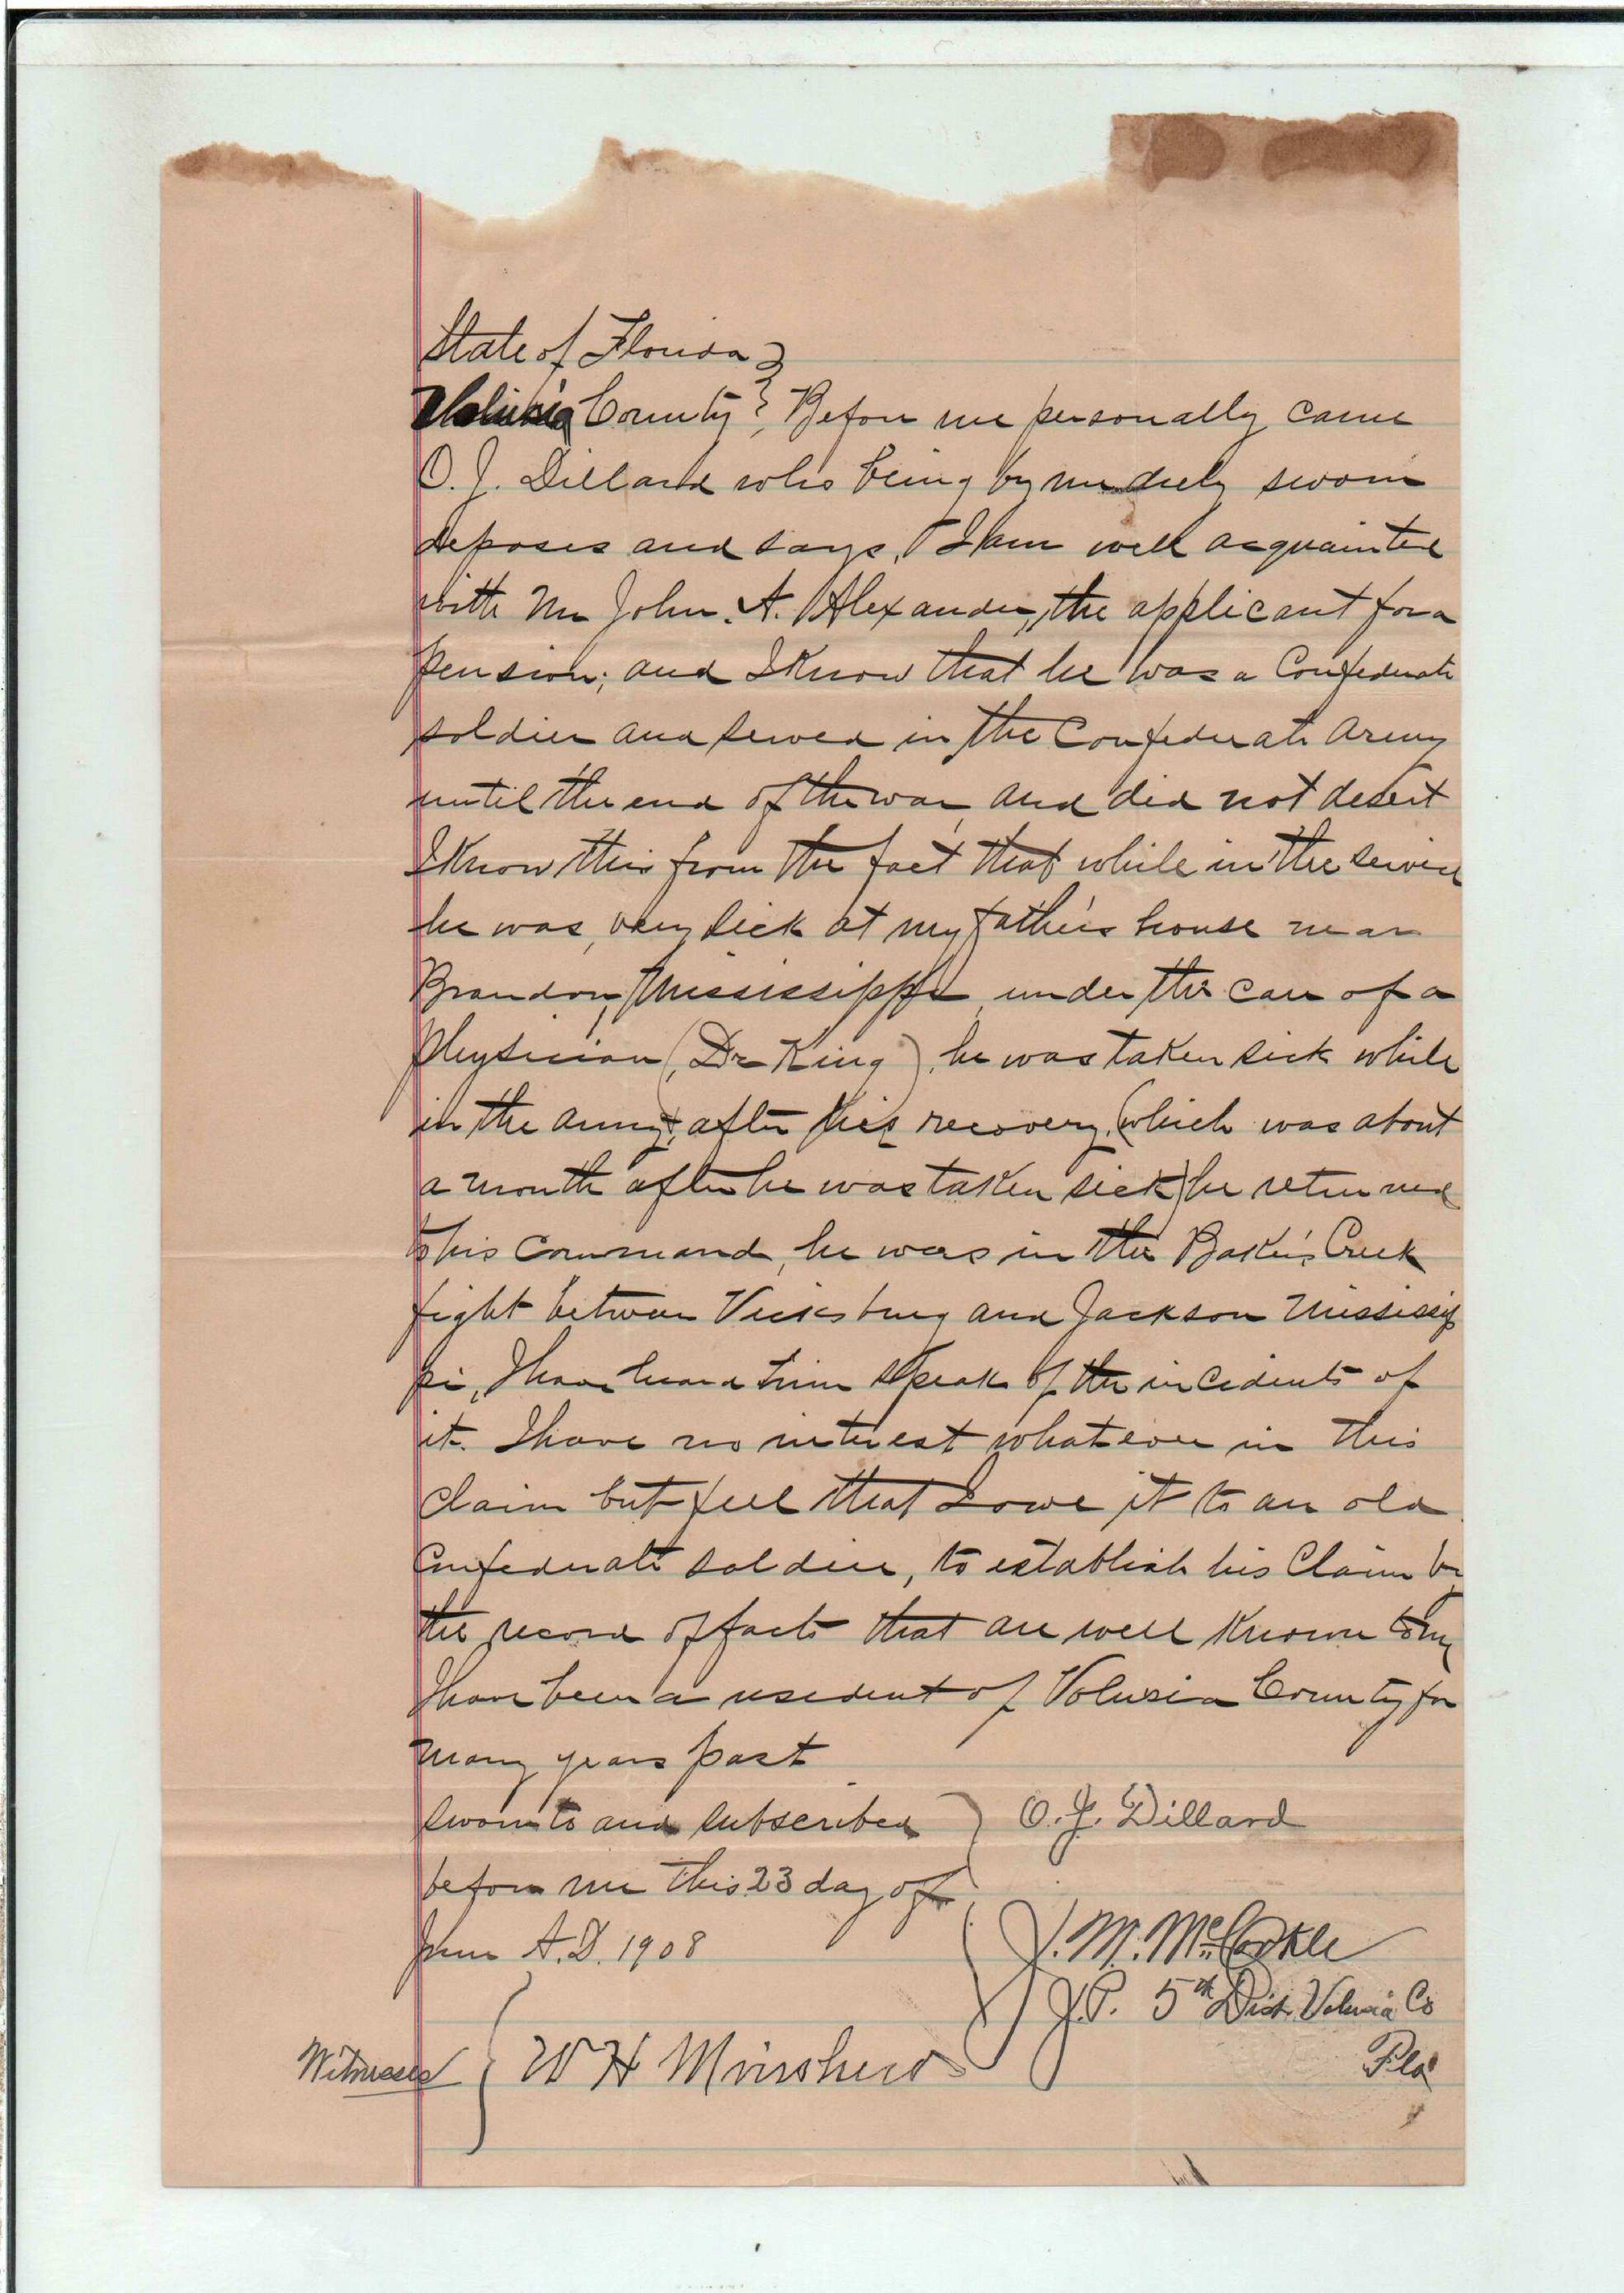 State of Florida }
Volusia County }, Before me personally came
O. J. Dillard who being by me duly sworn
deposes and says, I am well acquainted
with Mr John. A. Alexander, the applicant for a
pension; and I Know that he was a Confederate
soldier and served in the Confederate Army
until the end of the war and did not desert
I Know this from the fact that while in the service
he was, very sick at my father's house near
Brandon, Mississippi, under the care of a
Physician (Dr King), he was taken sick while
in the army, after his recovery, (which was about
a month after he was taken sick) he returned
to his Command, he was in the Baker's Creek
fight between Vicksburg and Jackson Mississip
pi, I have heard him speak of the incidents of
it. I have no interest whatever in this
Claim but feel that I owe it to an old
Confederate soldier, to establish his Claim by
the record of facts that are well Known to me
I have been a resident of Volusia County for
many years past
Sworn to and subscribed } O. J. Dillard
before me this 23 day of
June A.D. 1908 J. M. McCorkle
J.P. 5th Dist. Volusia Co
Fla
Witnesses { W H